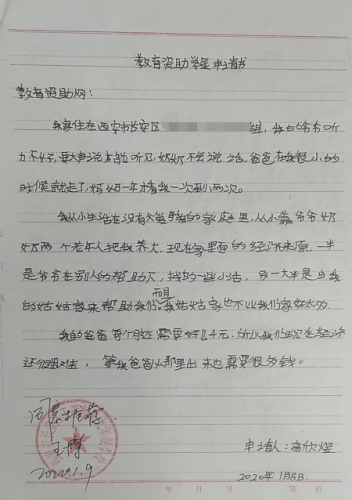 教育资助学生申请书
教育资助网：
我家住在西安市长安区 组，我的爷爷听
力不好，要大声说才能听见，奶奶不会说话，爸爸在我很小的
时候就走了，妈妈一年看我一次到两次。
我从小生活在没有父爱母爱的家庭里，从小靠爷爷奶
奶两个老年人把我养大，现在家里面的经济来原，一半
是爷爷在别人的帮助下，找的一些小活，另一大半是由我
的姑姑寄来帮助我们，而且我姑姑家也不比我们家好太多
我的爸爸每个月还需要好几千元，所以我们现在经济
还很困难，等我爸爸从那里出来也需要很多钱。
同意推荐
2020.1.9
申请人：高欣煜
2020年1月5日